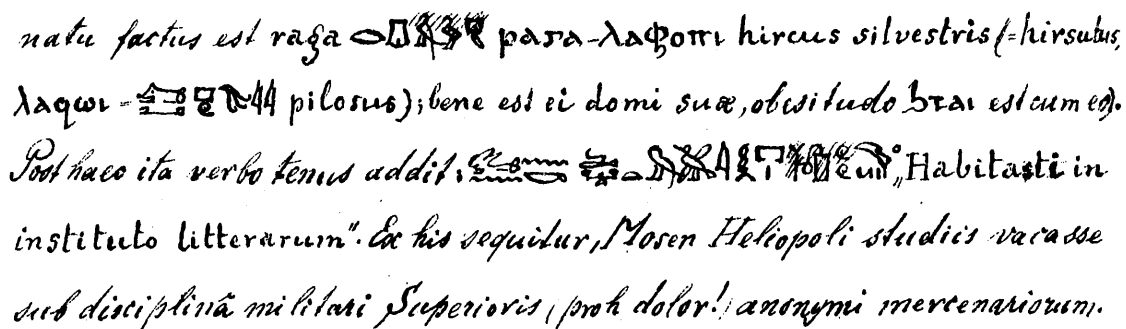 natu factus est raga ρаϭа-λаϥοπι hircus silvestris (=hirsutus,
λaqωι - pilosus); bene est ei domi suæ, obesitudo est cum eo).
Post haec ita verbo tenus addit: „Habitasti in
instituto litterarum". Ex his sequitur, Mosen Heliopoli studiis vacasse
sub disciplinâ militari Superioris, (proh dolor!) anonymi mercenariorum.